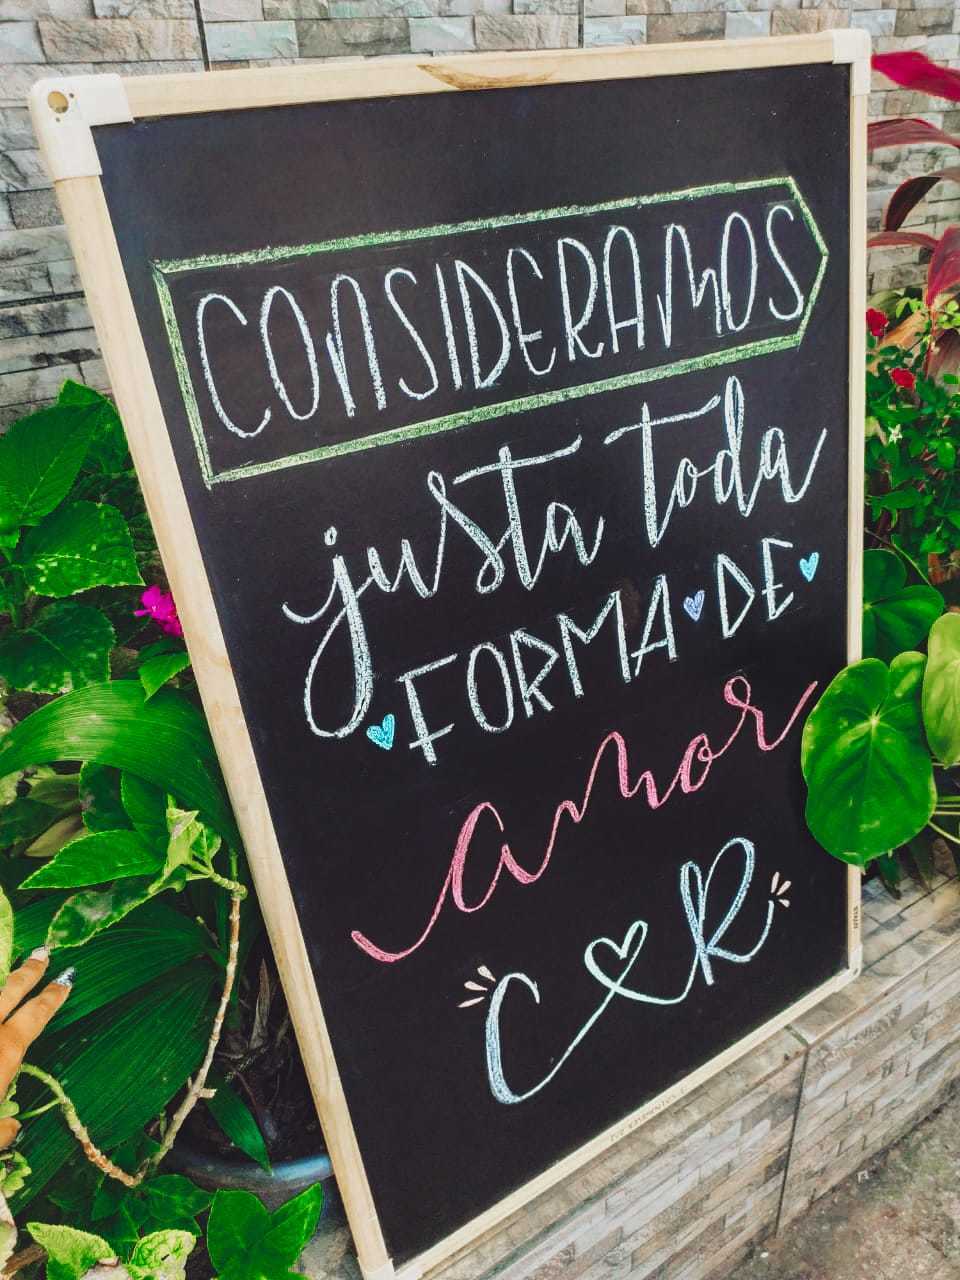 CONSIDERAMOS
justa toda
FORMA DE
amor
C R